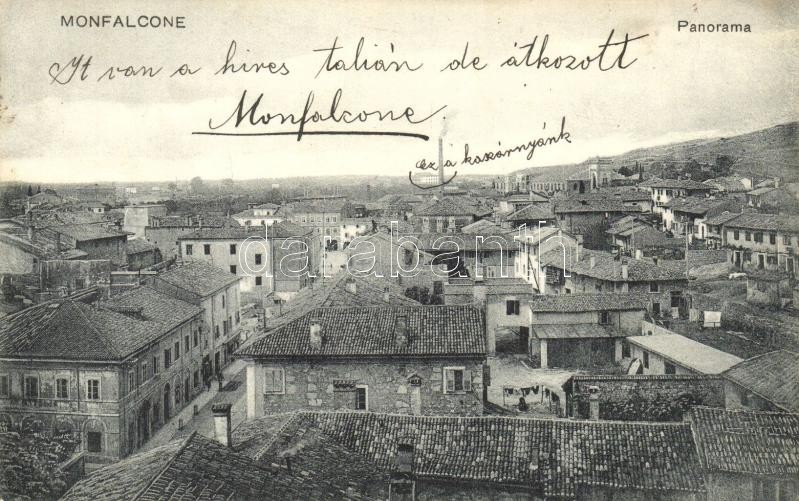 MONFALCONE
Panorama
Itt van a hires talián de átkozott
Monfalcone.
ez a kaszárnyánk
darabanth